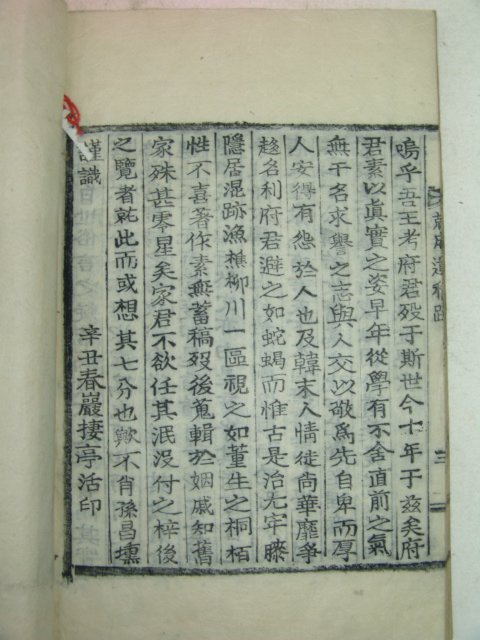 嗚乎吾王考府君歿于斯世今十年于玆矣府
君素以眞實之姿早年從學有不舍直前之氣
無干名求譽之志與人交以敬爲先自卑而厚
人安得有怨於人也及韓末人情徒尚華靡爭
趍名利府君避之如蛇蝎而惟古是治尢牢縢
隱居混跡漁樵柳川一區視之如菫生之桐栢
性不喜著作素無蓄稿歿後蒐輯於姻戚知舊
家殊甚零星矣家君不欲任其泯没付之梓後
之覽者就此而或想其七分也歟不肖孫昌壎
謹識
辛丑春巖捿亭活印
遺稿跋
三